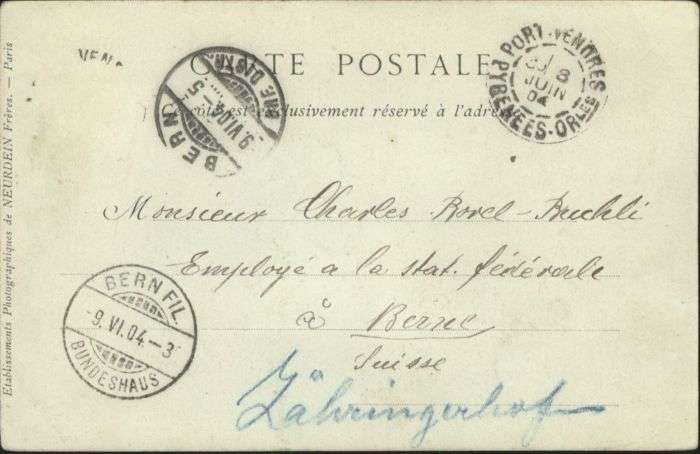 CARTE POSTALE
Ce côté est exclusivement réservé à l'adresse
Etablissements Photographiques de NEURDEIN Frères. — Paris
BERN
9. VI. 04. – 5
PORT-VENDRES
8
JUIN
04
PYRÉNÉES-ORLES
Monsieur Charles Borel-Buchli
Employé a la stat. fédérale
à Berne
Suisse
Zähringerhof
BERN FIL.
9. VI. 04 – 3
BUNDESHAUS